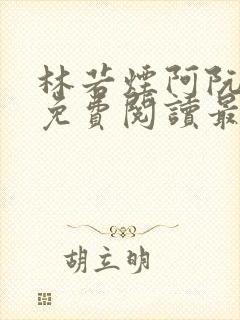 林若煙阿阮
免費閱讀最
胡立明